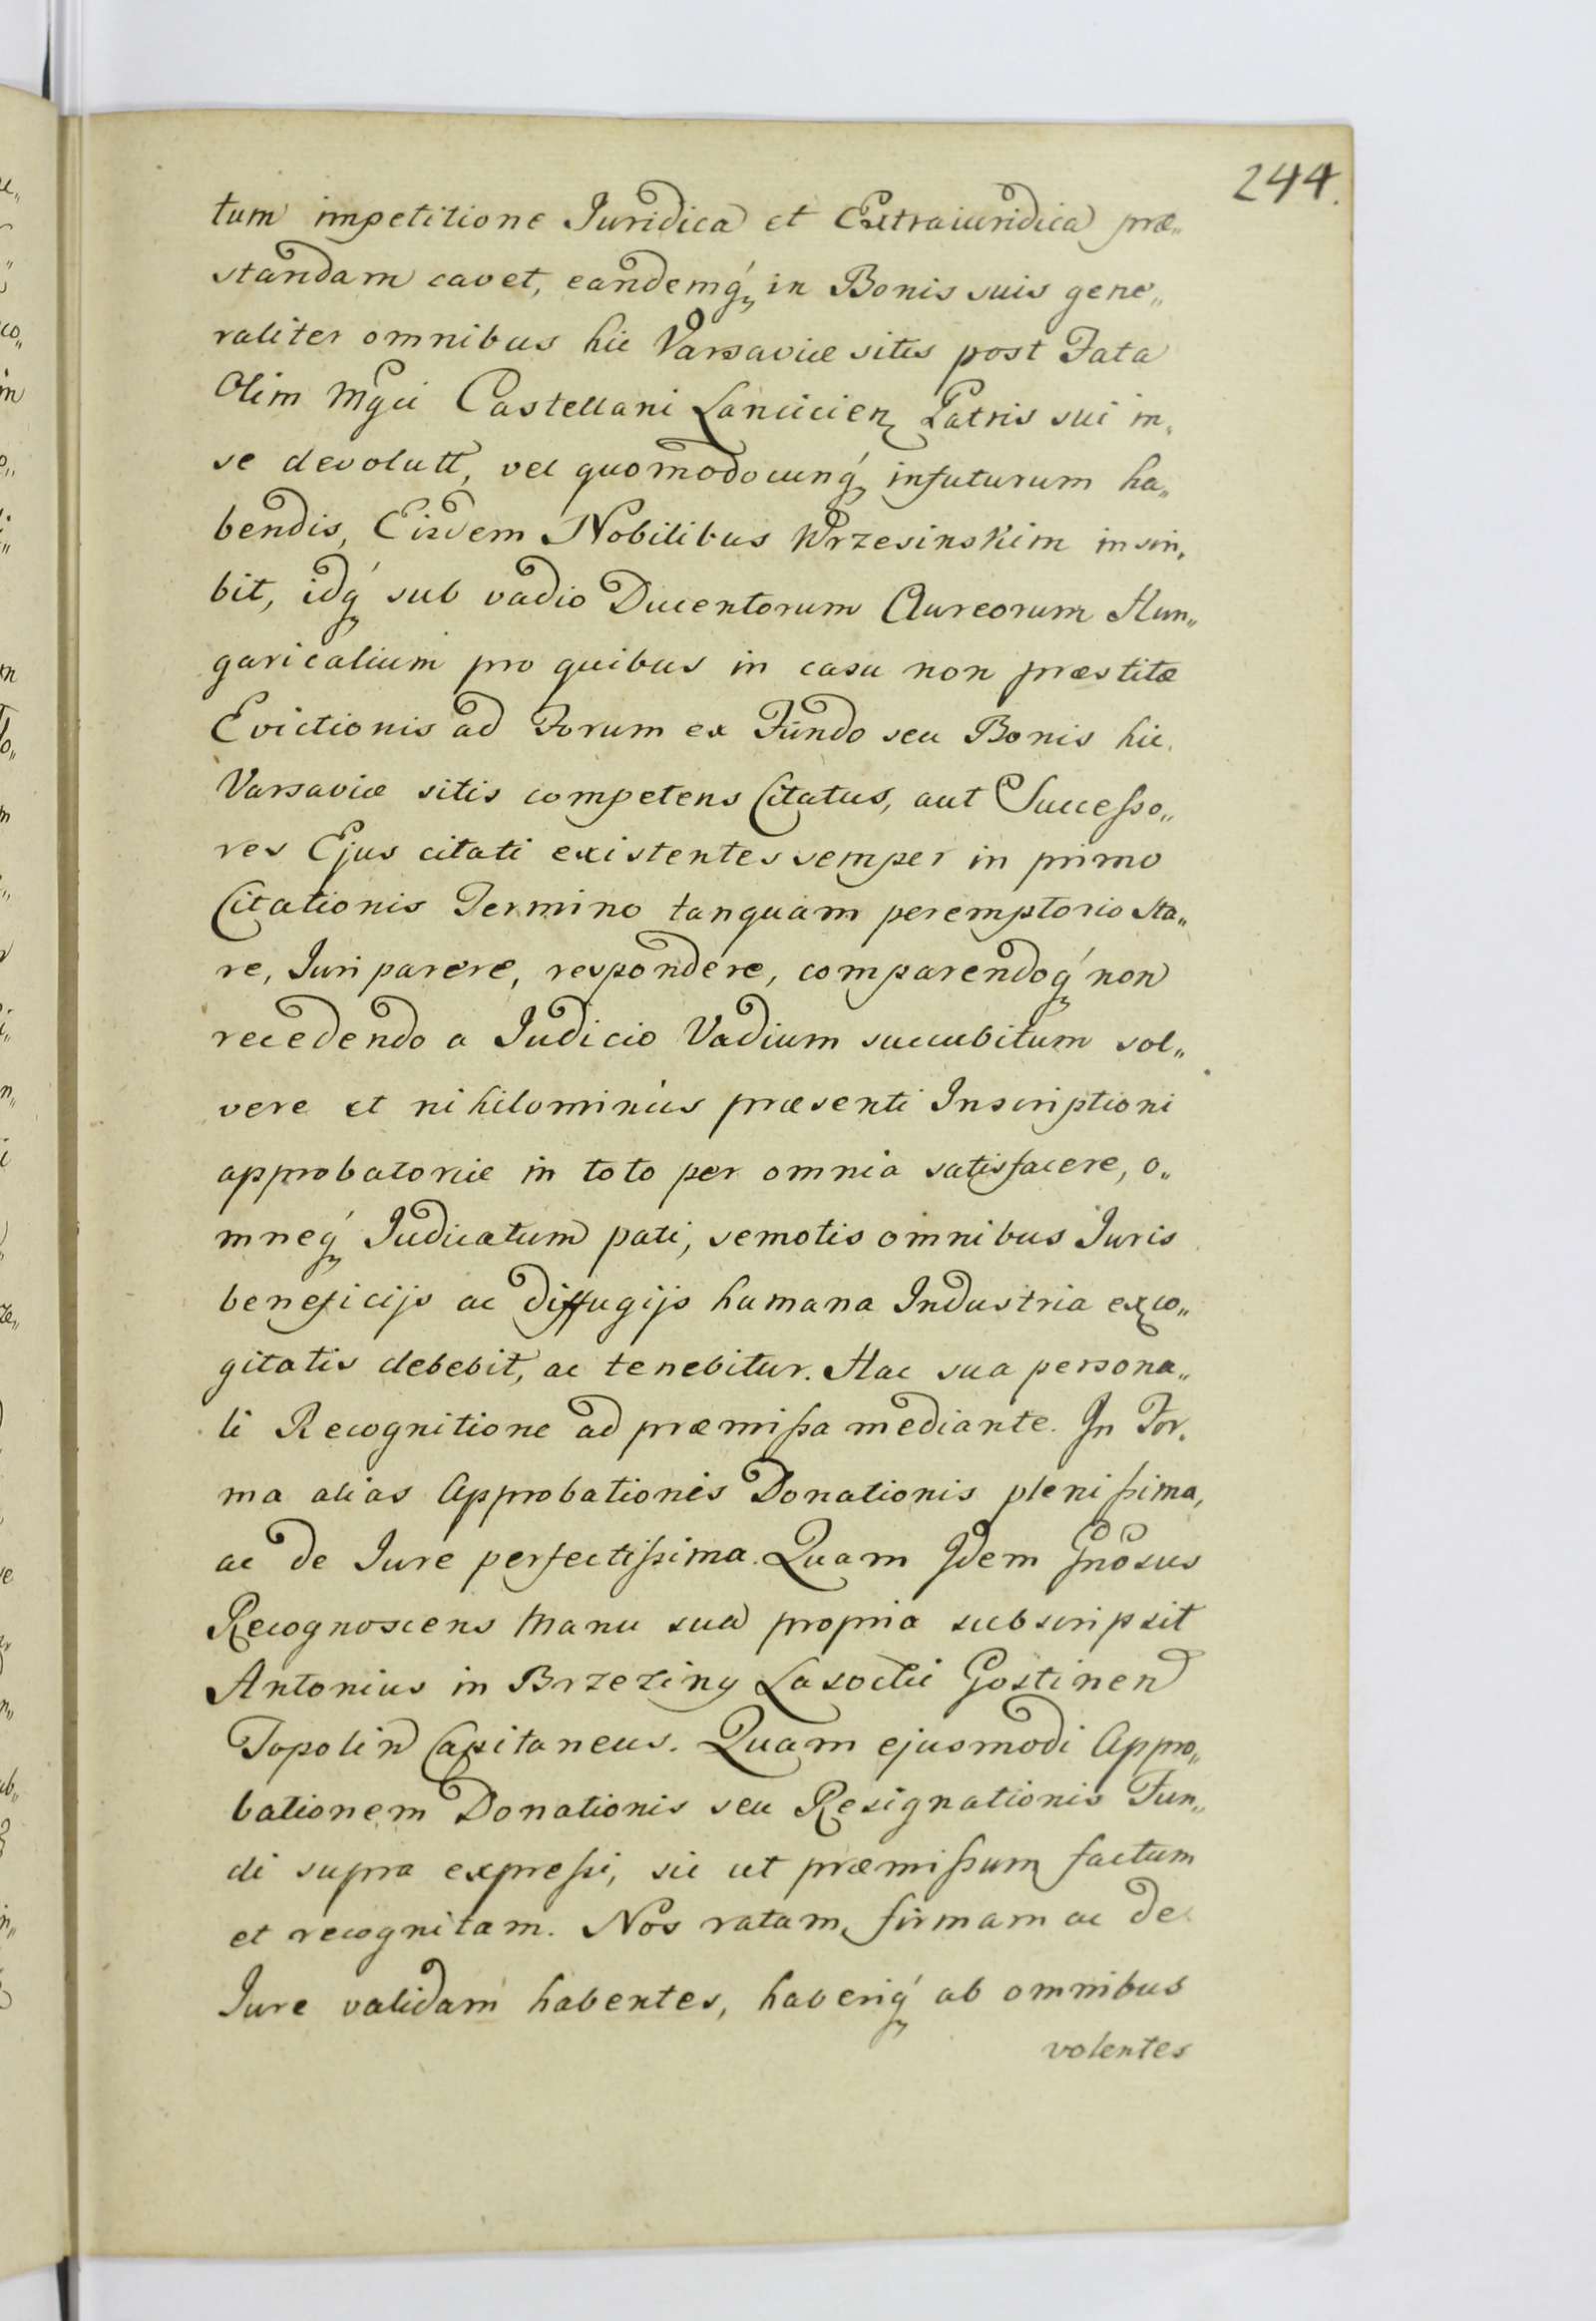 244.
tum impetitione Juridica et Extraiuridica præ„
standam cavet, eandemq́ in Bonis suis gene„
raliter omnibus hic Varsaviæ sitis post Fata
Olim Mgci Castellani Lancicien Patris sui in„
se devolutt, vel quomodocunq́ infuturum ha„
bendis, Eisdem Nobilibus Wrzesinskim inscri„
bit, idq́ sub vadio Ducentorum Aureorum Hun„
garicalium pro quibus in casu non præstitæ
Evictionis ad Forum ex Fundo seu Bonis hic
Varsaviæ sitis competens Citatus, aut Succeßo„
res Ejus citati existentes semper in primo
Citationis Termino tanquam peremptorio sta„
re, Juri parere, respondere, comparendoq́ non
recedendo a Judicio Vadium succubitum sol„
vere et nihilominus præsenti Inscriptioni
approbatoriæ in toto per omnia satisfacere, o„
mneq́ Judicatum pati, semotis omnibus Juris
beneficijs ac diffugijs humana Industria exco„
gitatis debebit, ac tenebitur. Hac sua persona„
li Recognitione ad præmißa mediante. In For„
ma alias Approbationis Donationis plenißima,
ac de Jure perfectißima. Quam Idem Gnosus
Recognoscens Manu sua propria subscripsit
Antonius in Brzeziny Lasocki Gostinen
Topolin Capitaneus. Quam ejusmodi Appro„
bationem Donationis seu Resignationis Fun„
di supra expreßi, sic ut præmißum factum
et recognitam. Nos ratam, firmam ac de
Jure validam habentes, haberiq́ ab omnibus
volentes